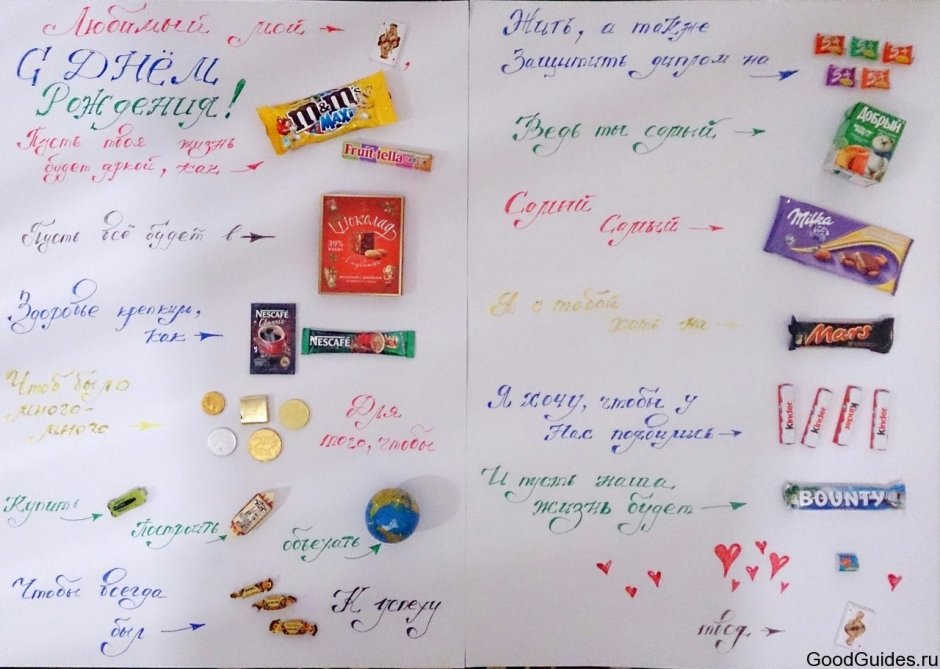 Любимый мой
С ДНЁМ
Рождения!
m&m's
MAXI
Fruittella
Пусть твоя жизнь
будет яркой, как
Пусть всё будет в
Шоколад
39%
Здоровье крепким,
как
NESCAFÉ
Classic
NESCAFÉ
Чтоб было
много-
много
Для
того, чтобы
Купить
Построить
объехать
Чтобы всегда
был
К успеху
Жить, а также
Защитить диплом на
Ведь ты самый
Добрый
Самый
Самый
Milka
Я с тобой
хоть на
Mars
Я хочу, чтобы у
Нас появились
Kinder
Kinder
Kinder
Kinder
И пусть наша
жизнь будет
BOUNTY
твоя
GoodGuides.ru